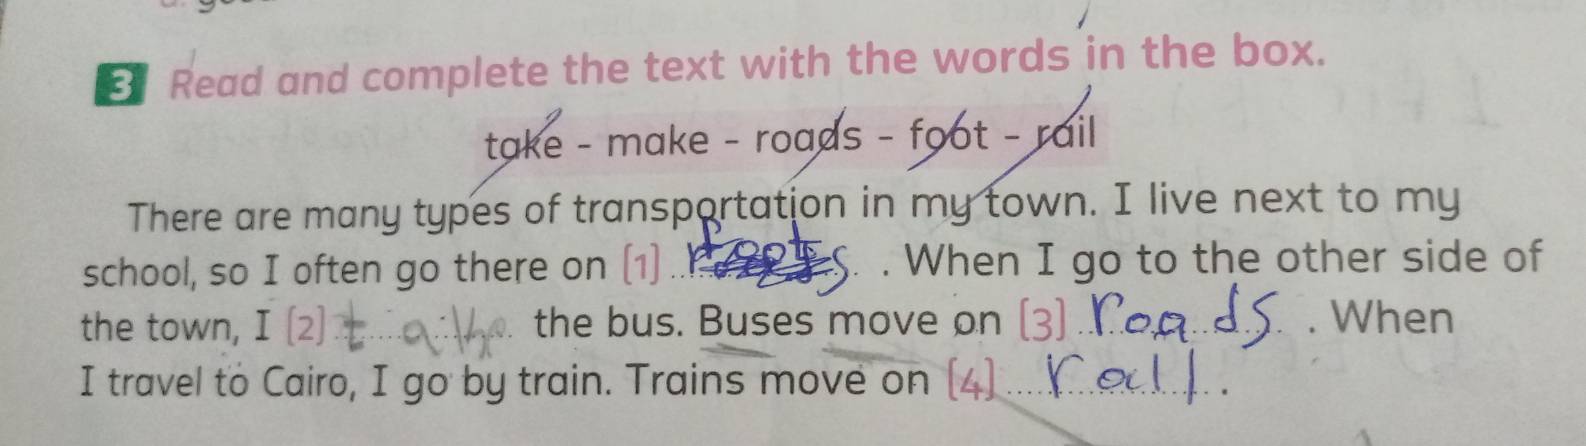 3 Read and complete the text with the words in the box.
take - make - roads - foot - rail
There are many types of transportation in my town. I live next to my
school, so I often go there on (1) foot . When I go to the other side of
the town, I (2) the bus. Buses move on (3) roads . When
I travel to Cairo, I go by train. Trains move on (4) rail .